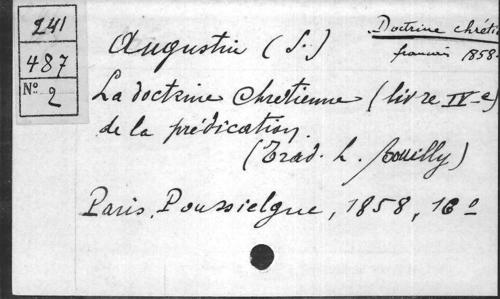 241
487
Nº 2
Augustin (S.)
Doctrine chréti
français 1858.
La doctrine Chrétienne (livre IV-e)
de la prédication.
(Trad. L. )
Paris, Poussielgue, 1858, 16º